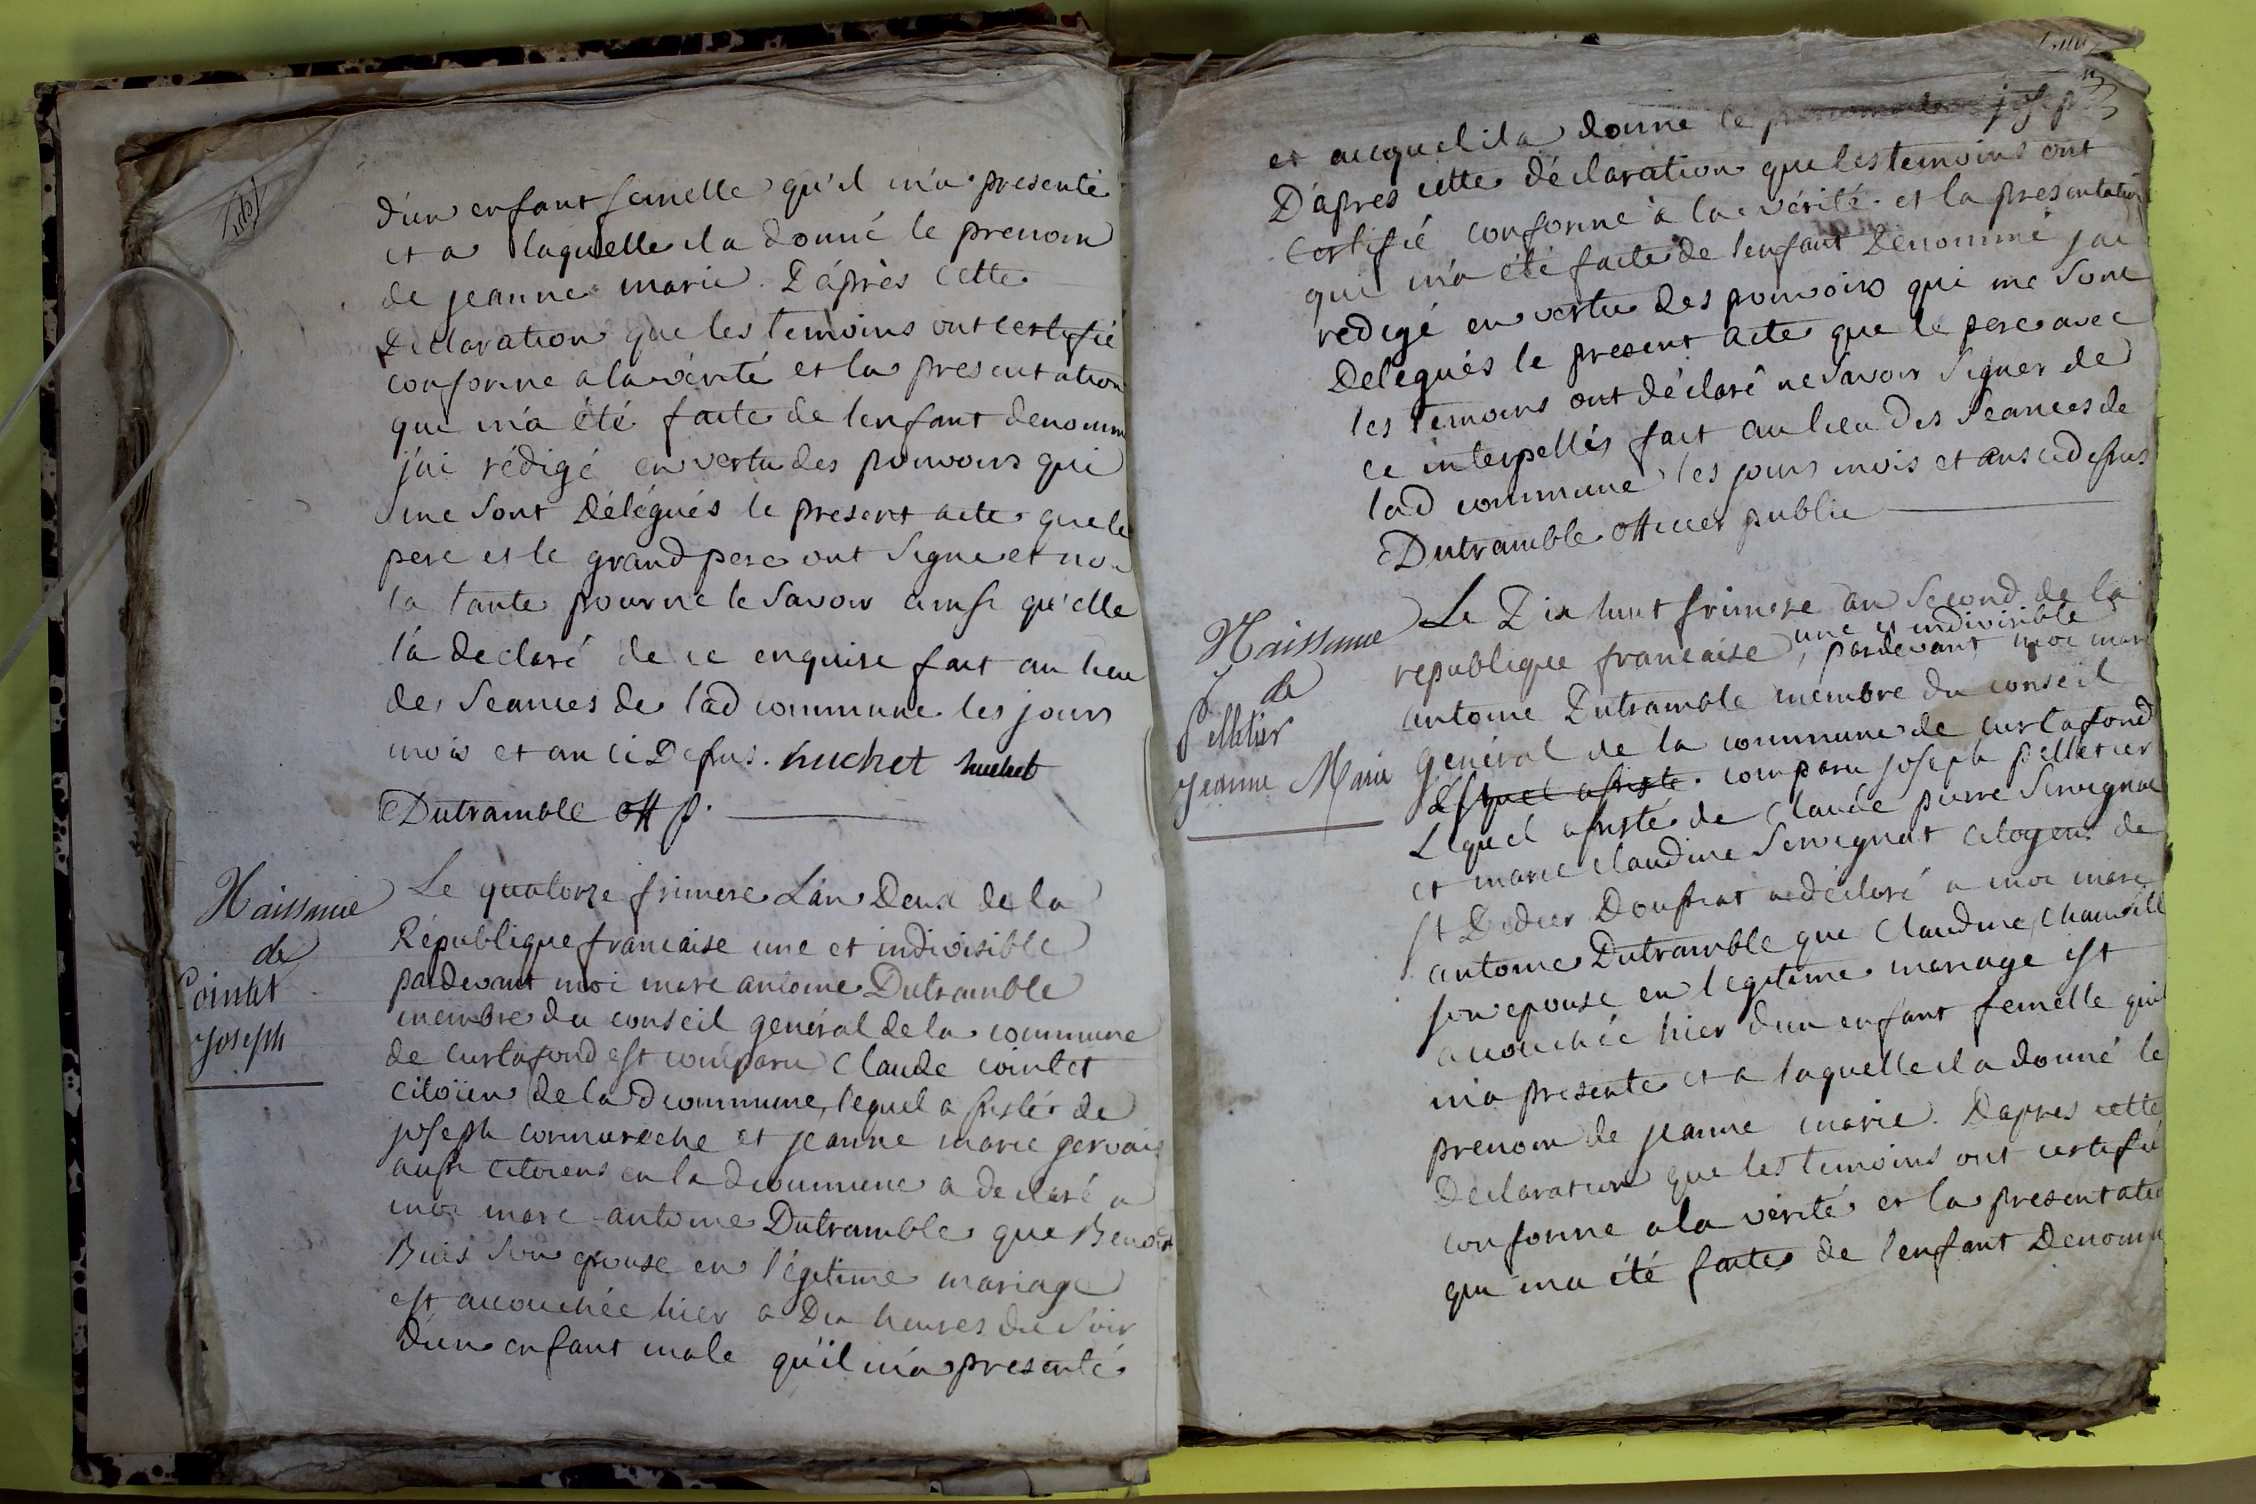 d'un enfant femelle qu'il m'a presenté
et a laquelle il a donné le prenom
de jeanne marie. D'après cette
Declaration que les temoins ont certifié
conforme a la vérité et la presentation
qui m'a été faite de l'enfant denomm
j'ai rédigé en vertu des pouvoirs qui
me sont Délégués le present acte que le
pere et le grand pere ont signe et no
la tante pour ne le savoir ainsi qu'elle
l'a declaré de ce enquise fait au lieu
des seances de lad commune les jours
mois et an ci Dessus. huchet huchet
Dutramble off p.
Naissance
de
Cointet
joseph
Le quatorze frimere L'an Deux de la
République francaise une et indivisible
pardevant moi marc antoine Dutramble
membre du conseil général de la commune
de curtafond est comparu Claude cointet
citoïen de lad commune, lequel assisté de
joseph cormareche et jeanne marie gervais
aussi citoiens en lad commune a declaré a
moi marc antoine Dutramble que Benoite
Buis son epouse en légitime mariage
est accouchée hier a Dix heures du soir
d'un enfant male qu'il m'a presenté
et auquel il a donné le prenom de joseph
D'apres cette déclaration que les temoins ont
certifié conforme à la vérité et la presentation
qui m'a été faite de l'enfant Denommé j'ai
redigé en vertu des pouvoirs qui me sont
Delegués le present acte que le pere avec
les temoins ont déclaré ne savoir signer de
ce interpellés fait au lieu Des seances de
lad commune les jours mois et ans ci dessus
Dutramble officier public
Naissance
de
Pelletier
jeanne Marie
Le Dix huit frimere an second de la
republique francaise une et indivisible, pardevant moi marc
antoine Dutramble membre du conseil
général de la commune de curtafond
lesquel assiste. comparu joseph pelletier
Lequel assisté de Claude pierre servignat
et marie claudine servignat citoyens de
St Didier Doussiat a déclaré a moi marc
antoine Dutramble que Claudine
son epouse en legitime mariage est
accouchée hier d'un enfant femelle qu'il
m'a presenté et a laquelle il a donné le
prenom de jeanne marie. D'apres cette
Declaration que les temoins ont certifié
conforme a la verité et la presentatio
qui m'a été faite de l'enfant Denomm